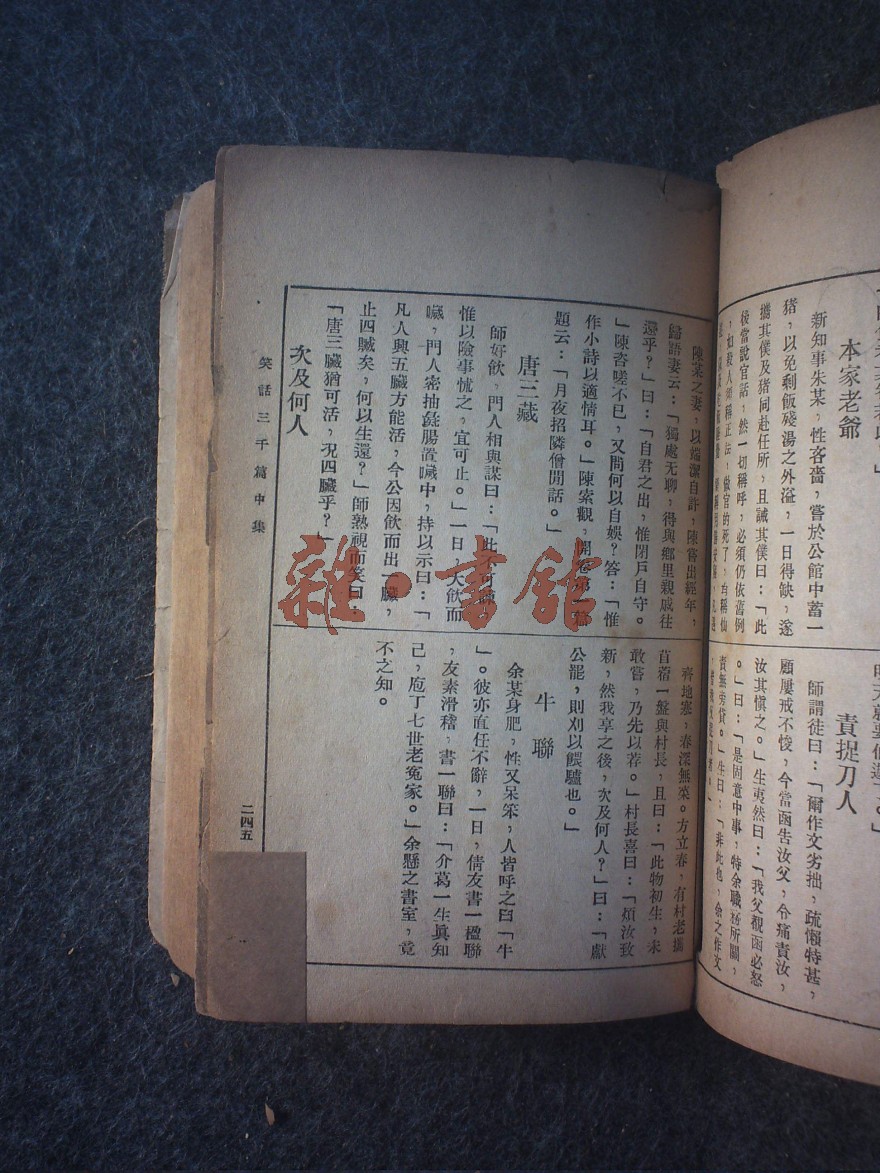 本家老爺
新知事朱某，性吝嗇，嘗於公館中蓄一
猪，以免剩飯殘湯之外溢，一日得缺，遂
攜其僕及猪同赴任所，且誡其僕曰：「此
後當說官話，然一切稱呼，必須仍依舊例
，如殺人須稱正法，做官的死了，
責捉刀人
師謂徒曰：「爾作文劣拙，疏懶特甚，
願屢戒不悛，今當函告汝父，令痛責汝，
汝其愼之。」生夷然曰：「我父覩函必怒
。」曰：「是固意中事，特余職務所關，
責無旁貸。」生曰：「非此也，余之作文
陳某之妻，以端潔自許，陳嘗出經年，
歸語妻云：「獨處无聊，得與鄉里親戚往
還乎？」曰：「自君之出，惟閉戶自守。
」陳咨嗟不已，又問何以自娛？答：「惟
作小詩以適情耳。」陳索觀，開卷第一
題云：「月夜招隣僧閒話。」
唐三藏
師好飲，門人相與謀曰：「此不可
惟以險事怵之，宜可止。」一日，大飲而
噦，門人密抽彘腸置噦中，持以示曰：「
凡人興五臟方能活，今公因飲而出一臟，
止四臟矣，何以生還？」師熟視而笑曰：
「唐三臟猶可活，况四臟乎？」
次及何人
齊地寒，春深無菜。方立春，有村老攜
苜蓿一盤與村長，且曰：「此物初生，未
敢嘗，乃先以荐。」村長喜曰：「煩汝致
新，然我享之後，次及何人？」曰：「獻
公罷，則刈以餵驢也。」
牛聯
余某身肥，性又呆笨，人皆呼之曰「牛
」。彼亦直任不辭，一日，倩友書一楹聯
，友素滑稽，書一聯曰：「介葛一生眞知
己，庖丁七世老冤家。」余懸之書室，竟
不之知。
笑話三千篇中集
二四五
雜·書館